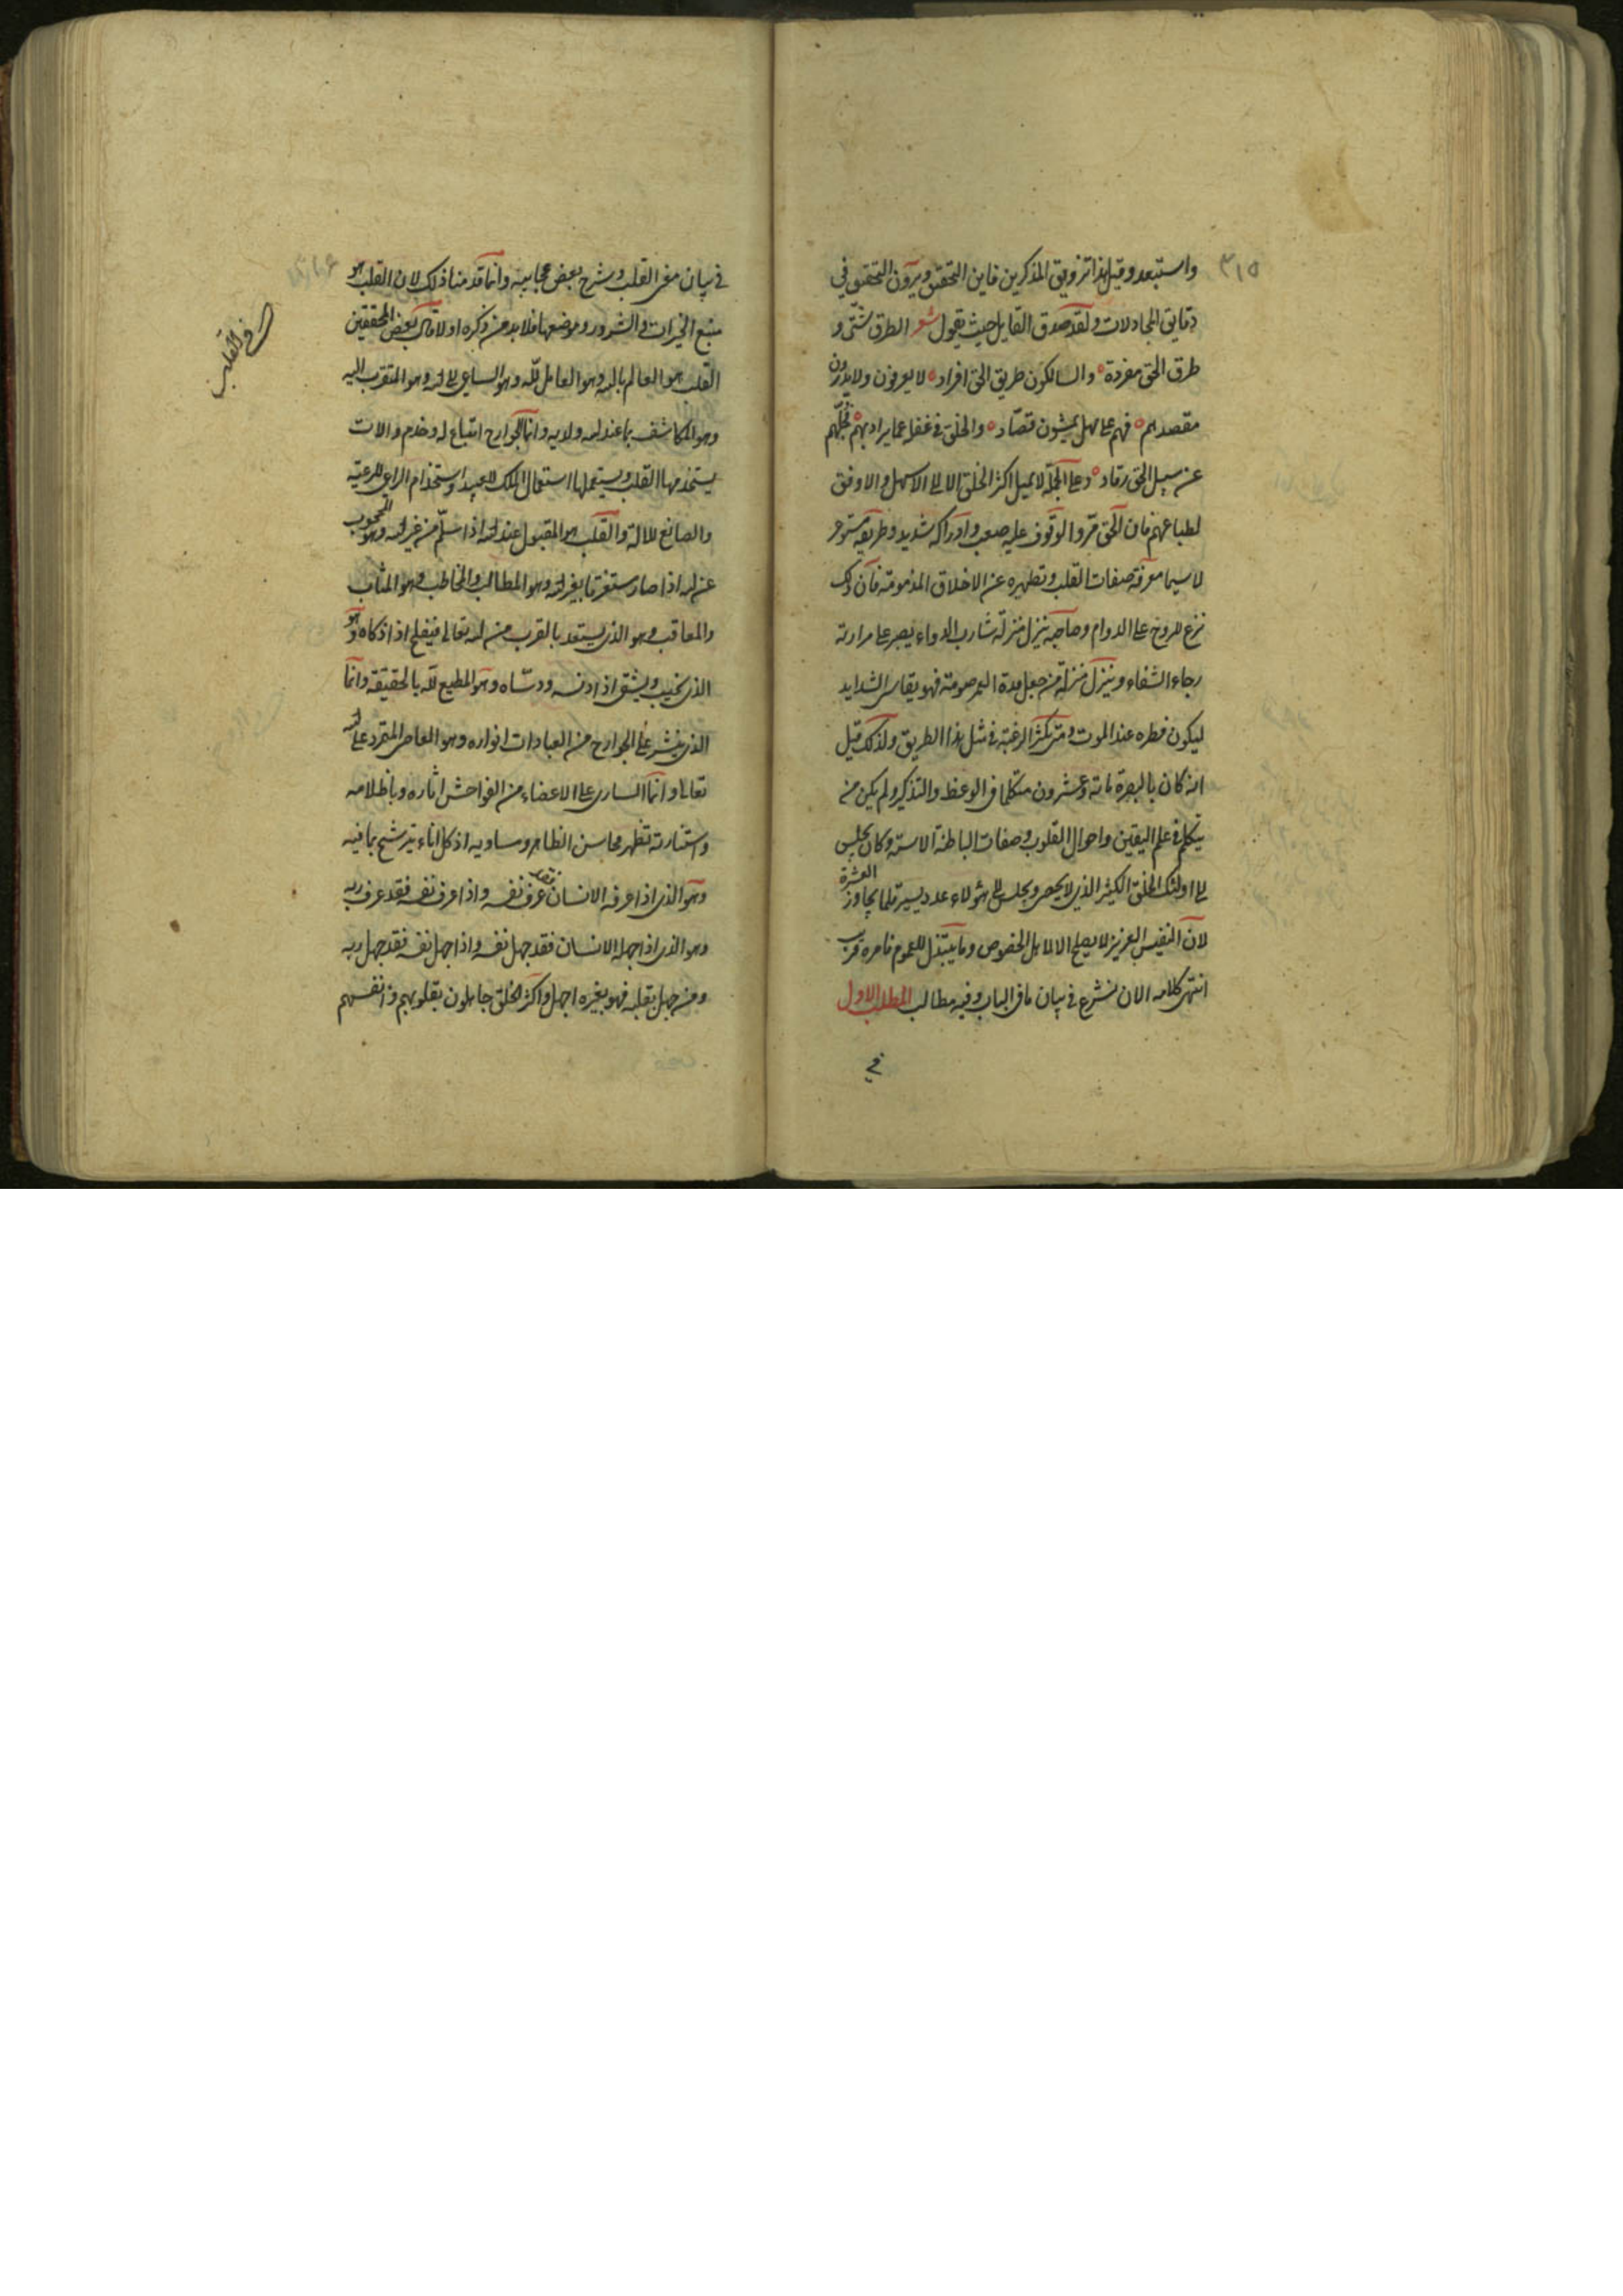 ٣١٥
واستبعد وقيل هذا تزويق المذكرين فاين التحقيق ويرون التحقيق في
دقايق المجادلات ولقد صدق القايل حيث يقول شعر الطرق شتى و
طرق الحق مفردة والسالكون طريق الحق افراد لا يعرفون ولا يدرون
مقصدهم فهم على مهل يمشون قصّاد والخلق في غفلة عما يراد بهم فجلّهم
عن سبيل الحق رقاد وعلى الجملة لا يميل اكثر الخلق الا الى الاسهل والاوفق
لطباعهم فان الحق مرّ والوقوف عليه صعب وادراكه شديد وطريقه مستوعر
لا سيما معرفة صفات القلب وتطهيره عن الاخلاق المذمومة فان ذلك
نزع للروح على الدوام وصاحبه ينزل منزلة شارب الدواء يصبر على مرارته
رجاء الشفاء وينزل منزلة من جعل مدة العمر صومه فهو يقاسى الشدايد
ليكون فطره عند الموت ومتى تكثر الرغبة في مثل هذا الطريق ولذلك قيل
انه كان بالبصرة مائة وعشرون متكلما في الوعظ والتذكير ولم يكن من
يتكلم في علم اليقين واحوال القلوب وصفات الباطنة الا ستة وكان يجلس
الى اولئك الخلق الكثير الذى لا يحصى ويجلس الى هؤلاء عدد يسير قلما يجاوز العشرة
لان النفيس العزيز لا يصلح الا لاهل الخصوص وما يبتذل للعموم فامره قريب
انتهى كلامه الان نشرع في بيان ما في الباب وفيه مطالب المطلب الاول
في
في بيان معنى القلب وشرح بعض عجايبه وانما قدمنا ذلك لان القلب هو
منبع الخيرات والشرور وموضعها فلا بد من ذكره اولا قال بعض المحققين
القلب هو العالم بالله وهو العامل لله وهو الساعى الى الله وهو المتقرب اليه
وهو المكاشف بما عند الله ولديه وانما الجوارح اتباع له وخدم والات
يستخدمها القلب ويستعملها استعمال الملك للعبيد واستخدام الراعى للرعية
والصانع للالة والقلب هو المقبول عند الله اذا سلم من غير الله وهو المحجوب
عن الله اذا صار مستغرقا بغير الله وهو المطالب والمخاطب وهو المثاب
والمعاقب وهو الذى يستعد بالقرب من الله تعالى فيفلح اذا زكاه وهو
الذى يخيب ويشقى اذا دنسه ودسّاه وهو المطيع لله بالحقيقة وانما
الذى ينشر على الجوارح من العبادات انواره وهو العاصى المتمرد على الله
تعالى وانما السارى على الاعضاء من الفواحش اثاره وباظلامه
واستنارته تظهر محاسن الظاهر ومساويه اذ كل اناء يترشح بما فيه
وهو الذى اذا عرفه الانسان فقد عرف نفسه واذا عرف نفسه فقد عرف ربه
وهو الذى اذا جهله الانسان فقد جهل نفسه واذا جهل نفسه فقد جهل ربه
ومن جهل بقلبه فهو بغيره اجهل واكثر الخلق جاهلون بقلوبهم وانفسهم
في القلب